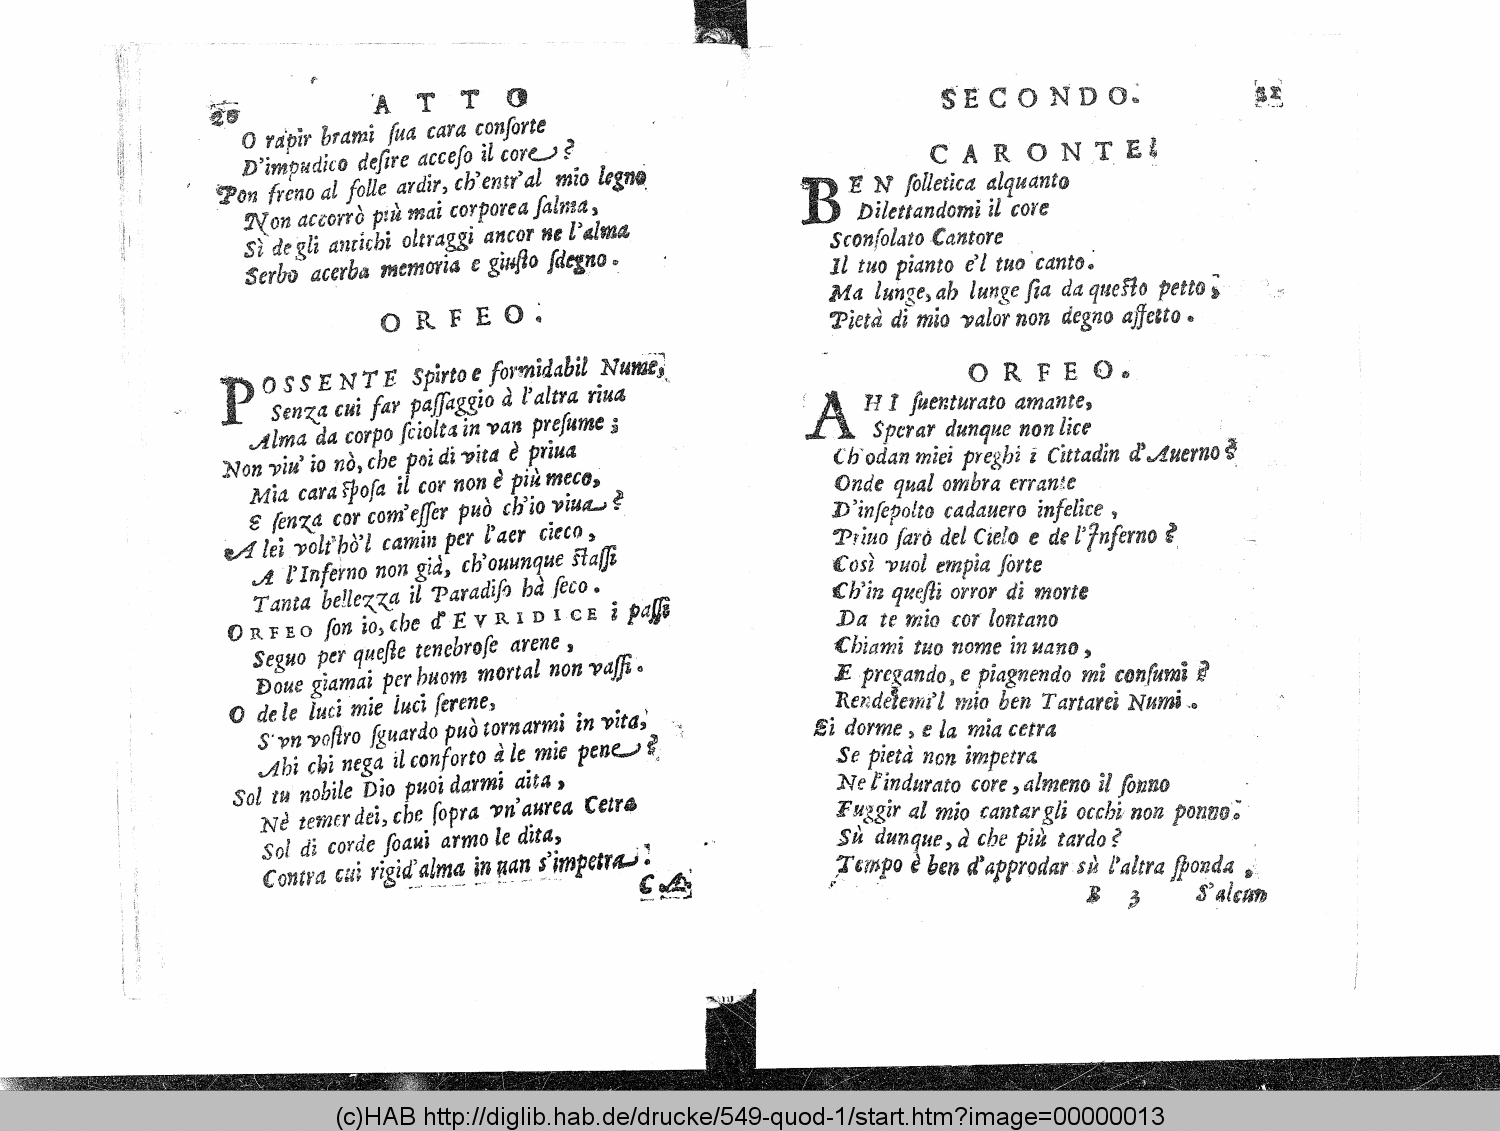 20
ATTO
O rapir brami ſua cara conſorte
D'impudico deſire acceſo il core?
Pon freno al folle ardir, ch'entr'al mio legno
Non accorrò più mai corporea ſalma,
Sì de gli antichi oltraggi ancor ne l'alma
Serbo acerba memoria e giuſto ſdegno.
ORFEO.
POSSENTE Spirto e formidabil Nume,
Senza cui far paſſaggio à l'altra riua
Alma da corpo ſciolta in van preſume;
Non viu' io nò, che poi di vita è priua
Mia cara ſpoſa il cor non è più meco,
E ſenza cor com'eſſer può ch'io viua?
A lei volt'hò'l camin per l'aer cieco,
A l'Inferno non già, ch'ouunque ſtaſſi
Tanta bellezza il Paradiſo hà ſeco.
ORFEO ſon io, che d'EVRIDICE i paſſi
Seguo per queſte tenebroſe arene,
Doue giamai per huom mortal non vaſſi.
O de le luci mie luci ſerene,
S'vn voſtro ſguardo può tornarmi in vita,
Ahi chi nega il conforto à le mie pene?
Sol tu nobile Dio puoi darmi aita,
Nè temer dei, che ſopra vn'aurea Cetra
Sol di corde ſoaui armo le dita,
Contra cui rigid'alma in uan s'impetra.
CA
SECONDO.
21
CARONTE.
BEN ſolletica alquanto
Dilettandomi il core
Sconſolato Cantore
Il tuo pianto e'l tuo canto.
Ma lunge, ah lunge ſia da queſto petto;
Pietà di mio valor non degno affetto.
ORFEO.
AHI ſuenturato amante,
Sperar dunque non lice
Ch'odan miei preghi i Cittadin d'Auerno?
Onde qual ombra errante
D'inſepolto cadauero infelice,
Priuo ſarò del Cielo e de l'Inferno?
Così vuol empia ſorte
Ch'in queſti orror di morte
Da te mio cor lontano
Chiami tuo nome in uano,
E pregando, e piagnendo mi conſumi?
Rendetemi'l mio ben Tartarei Numi.
Ei dorme, e la mia cetra
Se pietà non impetra
Ne l'indurato core, almeno il ſonno
Fuggir al mio cantar gli occhi non ponno.
Sù dunque, à che più tardo?
Tempo è ben d'approdar sù l'altra ſponda,
B 3 S'alcun
(c)HAB http://diglib.hab.de/drucke/549-quod-1/start.htm?image=00000013